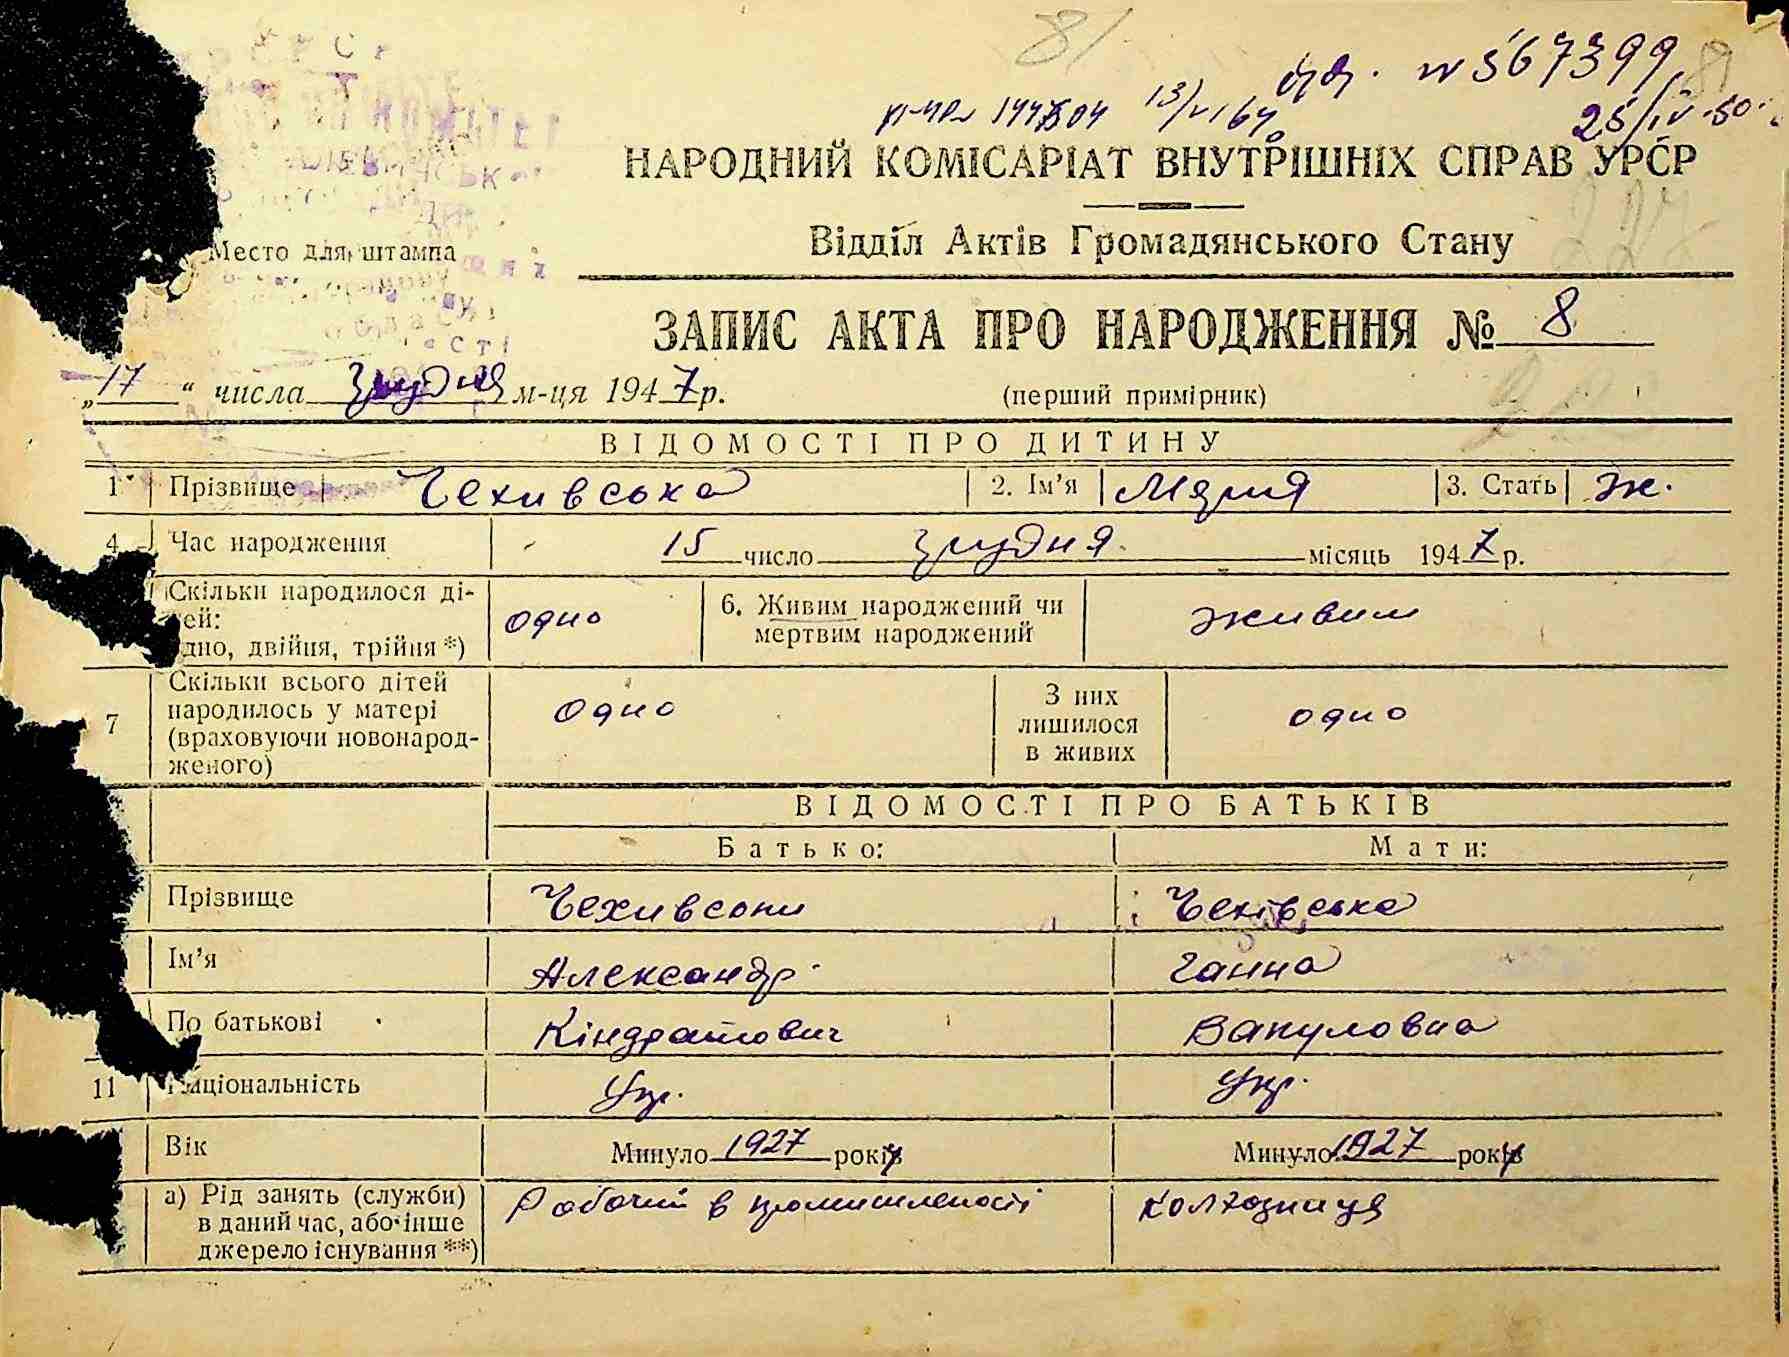 81
№ 567399
25/IV-50
НАРОДНИЙ КОМІСАРІАТ ВНУТРІШНІХ СПРАВ УРСР
Відділ Актів Громадянського Стану
227
Место для штампа
ЗАПИС АКТА ПРО НАРОДЖЕННЯ № 8
„17“ числа Грудня м-ця 1947 р. (перший примірник)
ВІДОМОСТІ ПРО ДИТИНУ
1 Прізвище Чехивська 2. Ім’я Мария 3. Стать ж.
4 Час народження 15 число Грудня місяць 1947 р.
Скільки народилося ді-
ей:
дно, двійня, трійня *) одно 6. Живим народжений чи
мертвим народжений живим
7 Скільки всього дітей
народилось у матері
(враховуючи новонарод-
женого) одно З них
лишилося
в живих одно
ВІДОМОСТІ ПРО БАТЬКІВ
Батько: Мати:
Прізвище Чехивский Чехівська
Ім’я Александр Ганна
По батькові Кіндратович Вакуловна
11 Національність Укр. Укр.
Вік Минуло 1927 року Минуло 1927 року
а) Рід занять (служби)
в даний час, або інше
джерело існування **) Рабочий в промишлености колхозниця